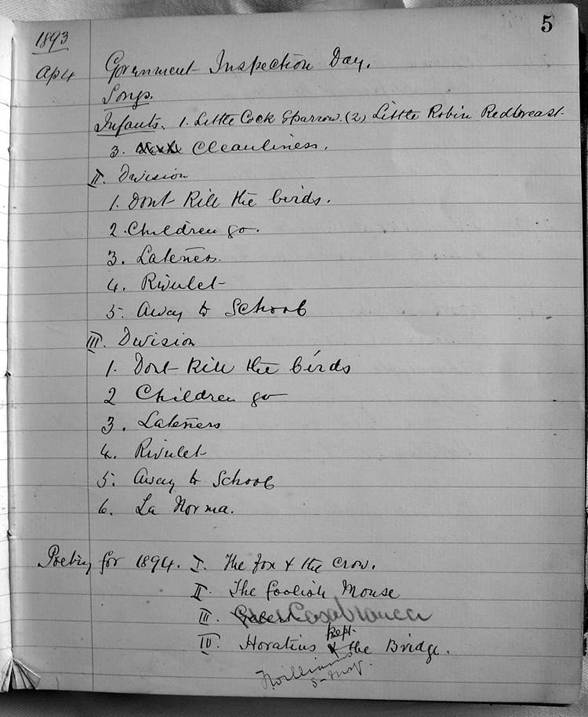 5
1893
Apl 4 Government Inspection Day.
Songs.
Infants. 1. Little Cock Sparrow. (2) Little Robin Redbreast.
3. Cleanliness.
II. Division
1. Dont Kill the birds.
2. Children go.
3. Lateness.
4. Rivulet
5. Away to School
III. Division
1. Dont Kill the birds
2 Children go
3. Lateness
4. Rivulet
5. Away to School
6. La Norma.
Poetry for 1894. I. The fox & the Crow.
II. The foolish Mouse
III. Casabianca
IV. Horatius kept the Bridge.